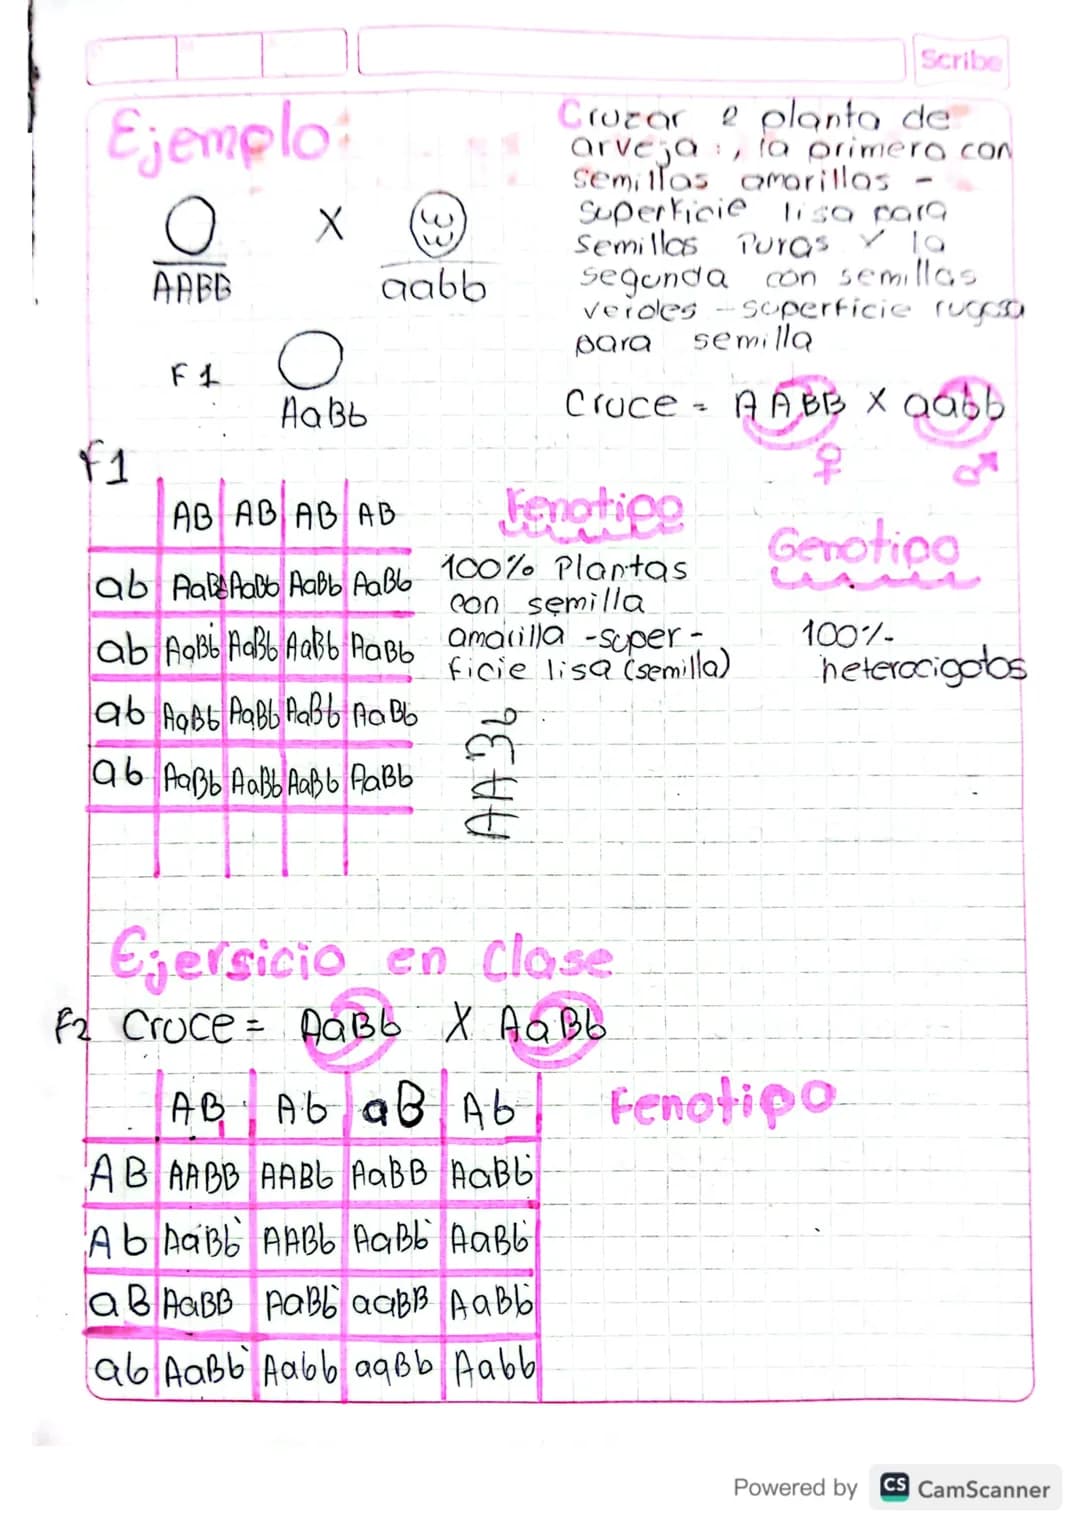 Scribe
Ejemplo:
X
AABB
aabb
F1
AaBb
Cruzar 2 planta de
arveja :, la primera con
semillas amarillas -
superficie lisa para
semillas Puras y la
segunda con semillas
verdes - superficie rugosa
para semilla
Cruce = AABB X aabb
♀ ♂
F1
AB AB AB AB
ab AaBb AaBb AaBb AaBb
ab AaBb AaBb AaBb AaBb
ab AaBb AaBb AaBb AaBb
ab AaBb AaBb AaBb AaBb
Fenotipo
100% Plantas
con semilla
amarilla -super-
ficie lisa (semilla)
AABb
Genotipo
100%
heterocigotos
Ejersicio en Clase
F2 Cruce = AaBb X AaBb
AB Ab aB Ab
AB AABB AABb AaBB AaBb
Ab AaBb AABb AaBb AaBb
aB AaBB AaBb aaBB AaBb
ab AaBb Aabb aaBb Aabb
Fenotipo
Powered by CS CamScanner